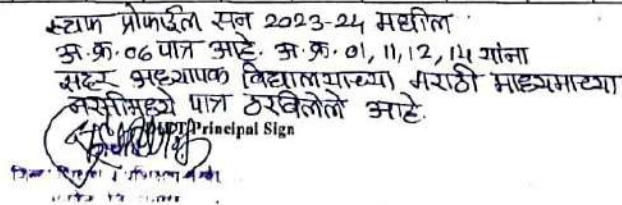 स्टाफ प्रोफाईल सन 2023-24 मधील
अ.क्र. 06 पात्र आहे. अ.क्र. 01, 11, 12, 14 यांना
सदर अध्यापक विद्यालयाच्या मराठी माध्यमाच्या
पात्र ठरविलेले आहे.
Principal Sign